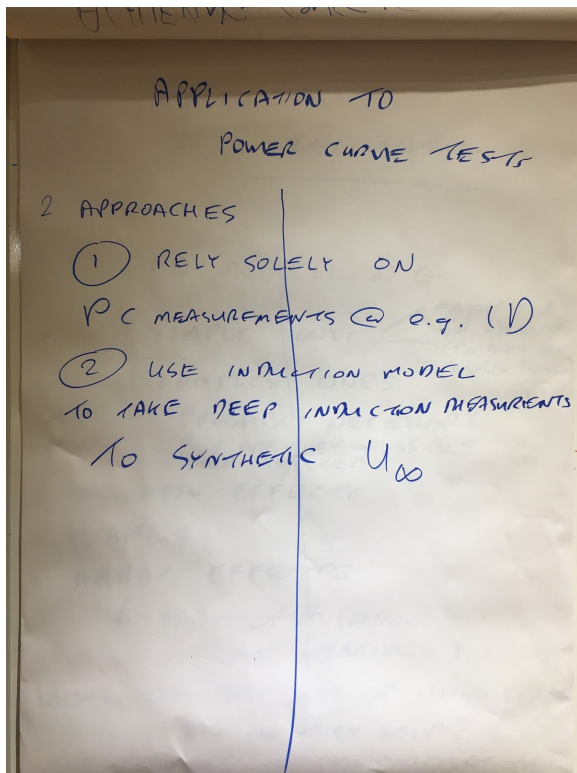 APPLICATION TO
POWER CURVE TESTS
2 APPROACHES
1 RELY SOLELY ON
PC MEASUREMENTS @ e.g. 1D
2 USE INDUCTION MODEL
TO TAKE DEEP INDUCTION MEASURMENTS
TO SYNTHETIC U∞